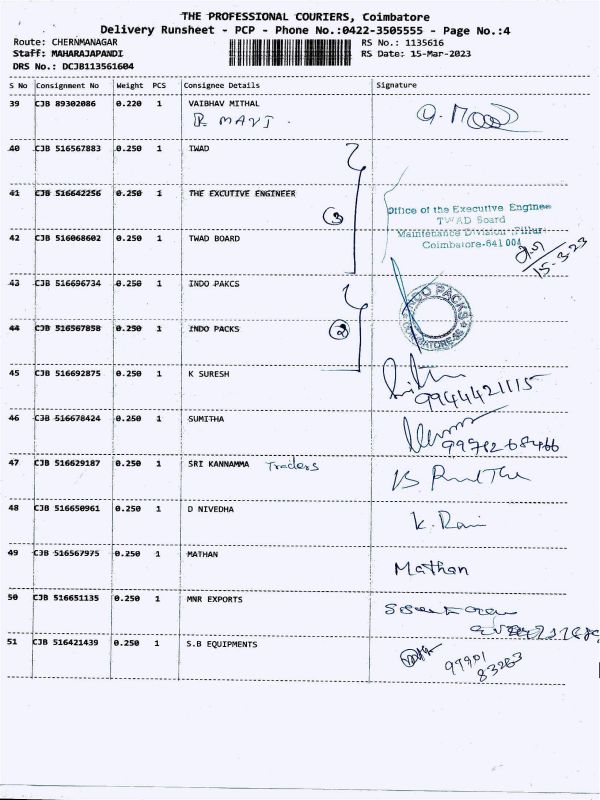 THE PROFESSIONAL COURIERS, Coimbatore
Delivery Runsheet - PCP - Phone No.:0422-3505555 - Page No.:4
Route: CHERNMANAGAR RS No.: 1135616
Staff: MAHARAJAPANDI RS Date: 15-Mar-2023
DRS No.: DCJB113561604
S No Consignment No Weight PCS Consignee Details Signature
39 CJB 89302086 0.220 1 VAIBHAV MITHAL
R MANJ .
40 CJB 516567883 0.250 1 TWAD
41 CJB 516642256 0.250 1 THE EXCUTIVE ENGINEER
3
Office of the Executive Enginee
TWAD Board
Maintenance Division Pillur
Coimbatore-641 004
42 CJB 516068602 0.250 1 TWAD BOARD
15-3-23
43 CJB 516696734 0.250 1 INDO PAKCS
INDO PACKS
COIMBATORE-35
44 CJB 516567858 0.250 1 INDO PACKS
2
45 CJB 516692875 0.250 1 K SURESH
9944421115
46 CJB 516678424 0.250 1 SUMITHA
47 CJB 516629187 0.250 1 SRI KANNAMMA Traders
48 CJB 516650961 0.250 1 D NIVEDHA
K. Rani
49 CJB 516567975 0.250 1 MATHAN
Mathan
50 CJB 516651135 0.250 1 MNR EXPORTS
51 CJB 516421439 0.250 1 S.B EQUIPMENTS
99901
83263